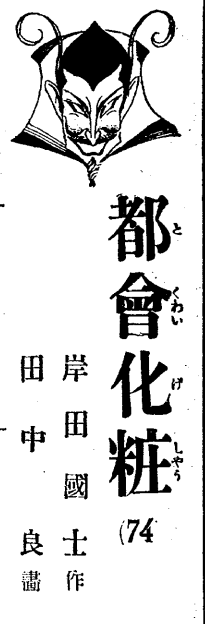 都會化粧
とくわいげしやう
(74
岸田國士作
田中良畵